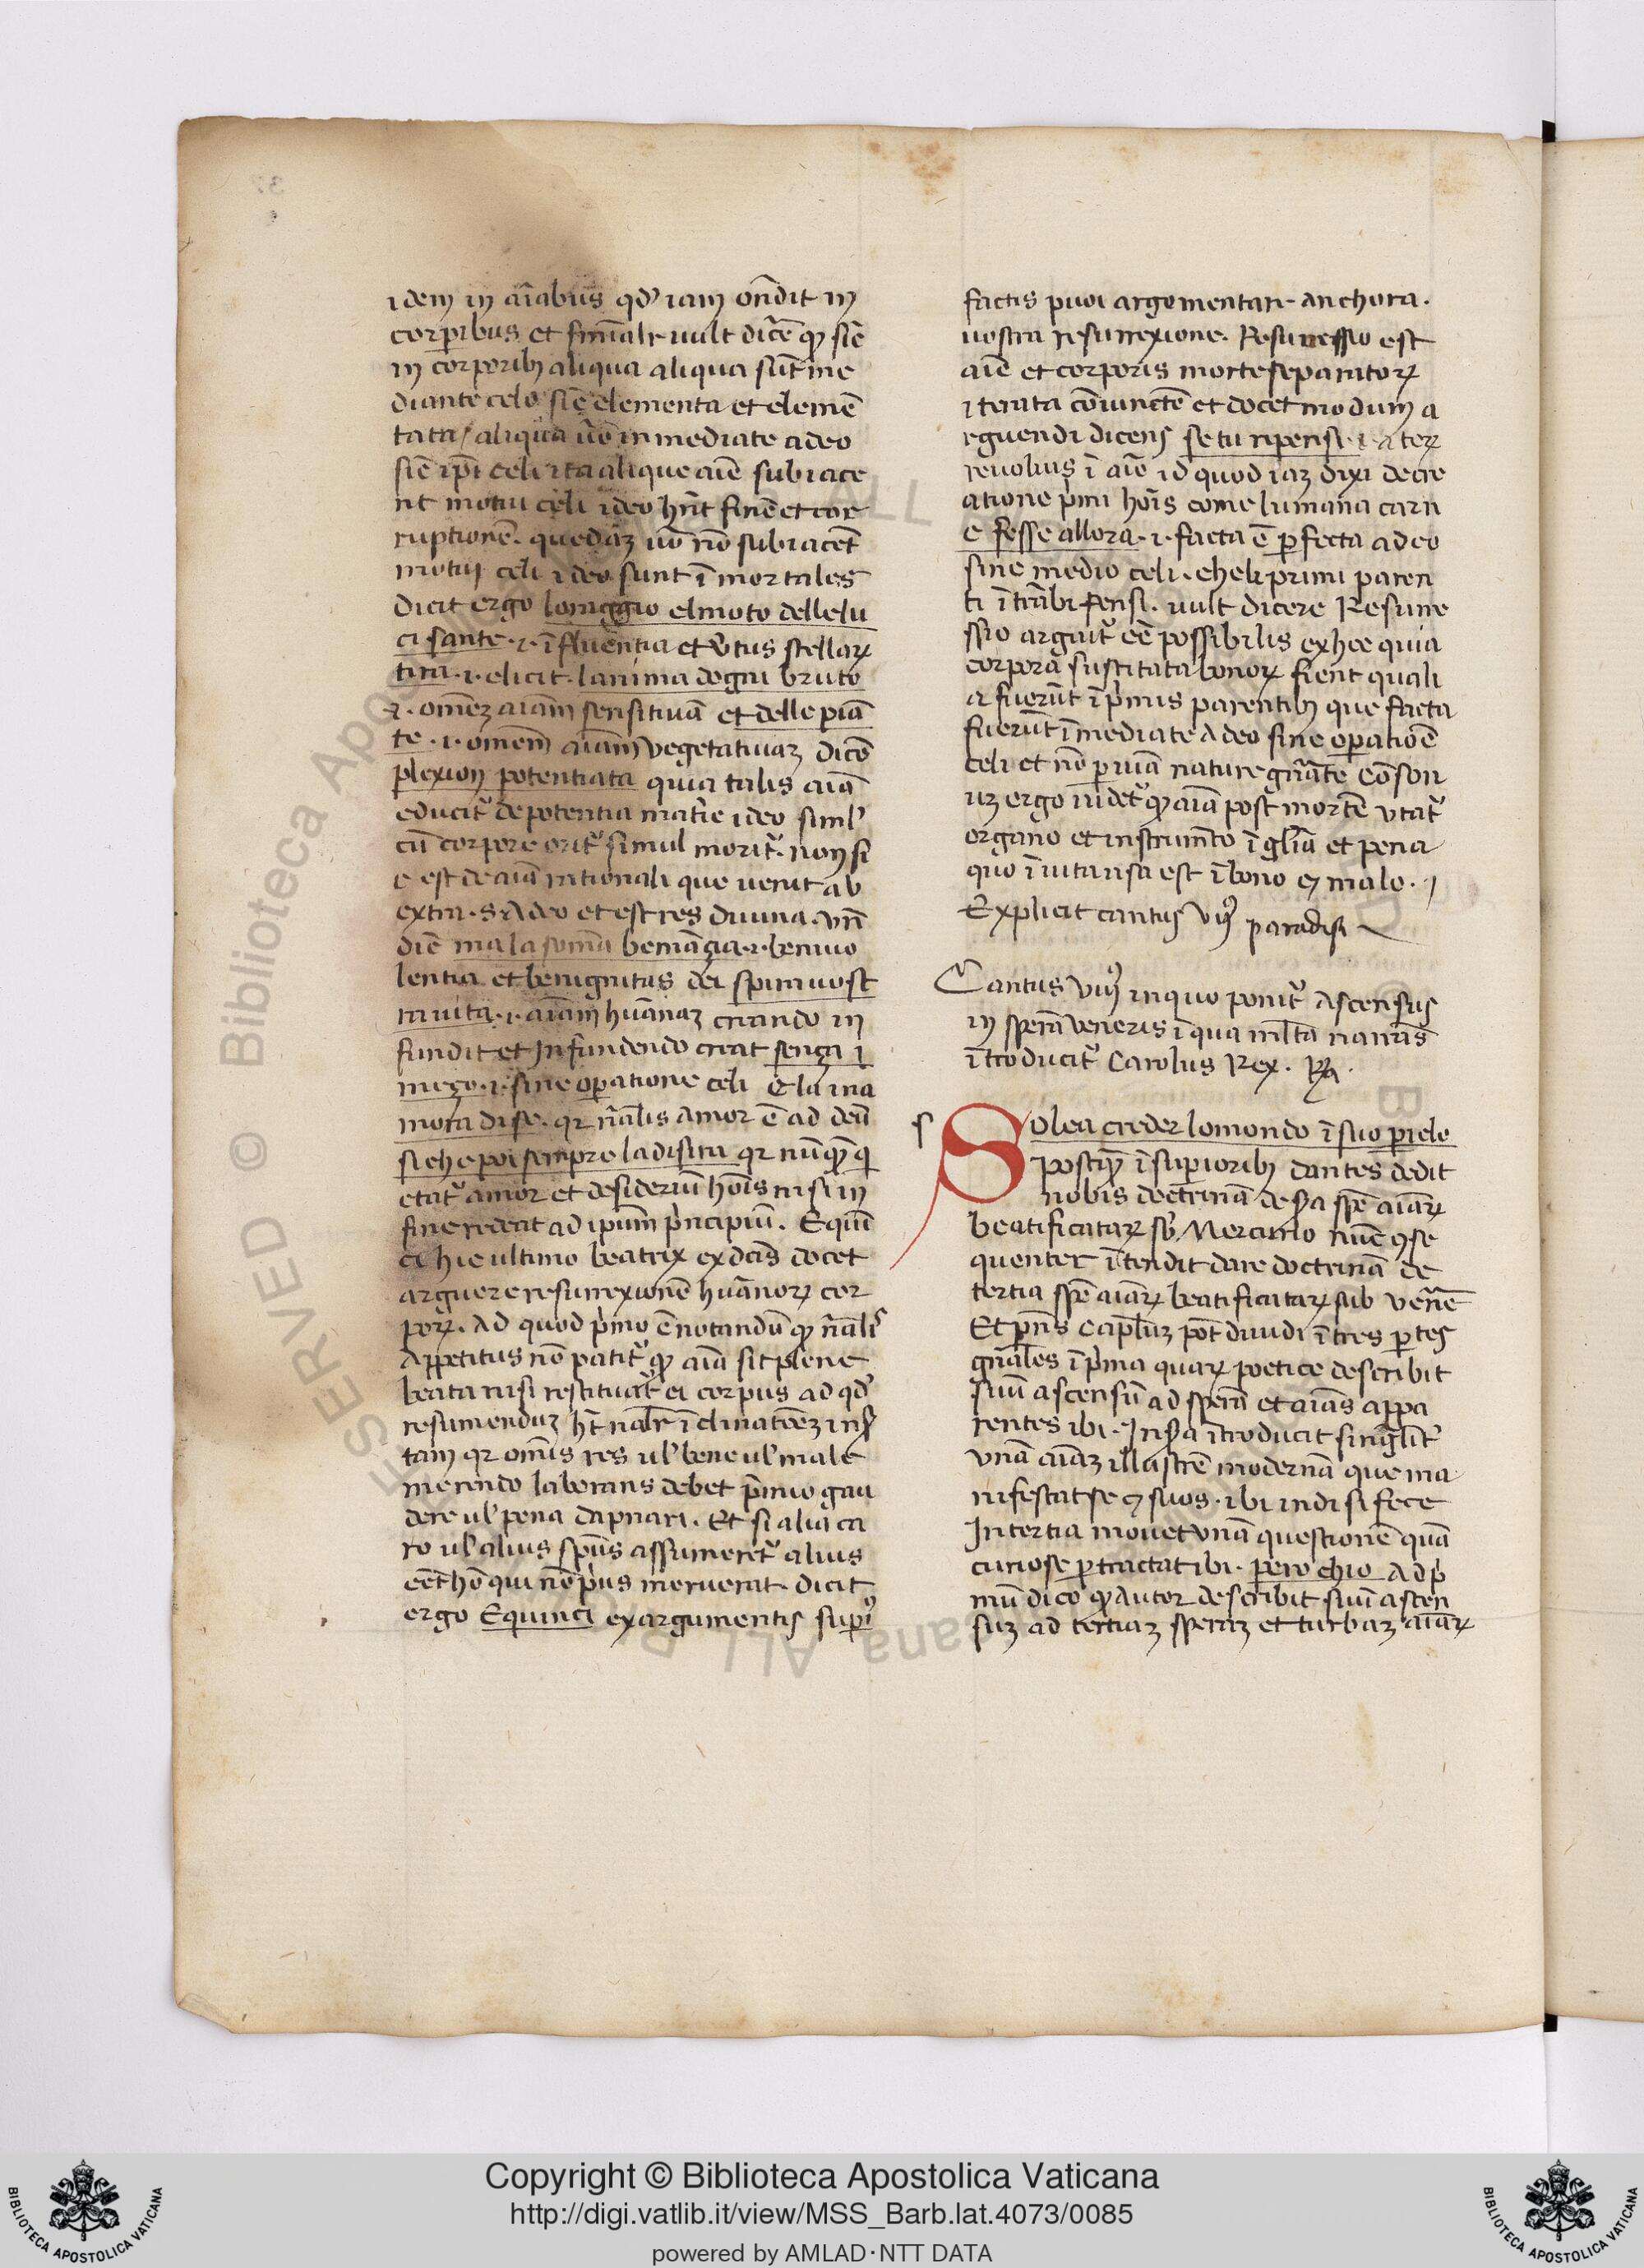 idem in aīabus qd' iam on̄dit in
corpibus et finialr uult dicē ꝙ sic̄
in corporibꝫ aliqua aliqua sūt me
diante celo sic̄ elementa et elemē
tata / aliqua uō inmediate a deo
sic̄ ip̄i celi ita alique aīe subiace
nt motui celi ideo hn̄t finē et cor
ruptionē. quedāz uō nō subiacēt
motui celi ideo sunt īmortales
Dicit ergo loraggio el moto delle lu
ci sante .i. īfluentia et v̄tus stellaꝝ
tira .i. elicit. lanima degni bruto
.i. omēz aīam sensitiuā et delle pian
te .i. omem̄ aīam vegetatiuaz di cō
plexion potentiata quia talis aīa
educit᷑ de potentia mat̄ie ideo siml'
cū corpore orit᷑ simul morit᷑. non si
c est de aīa rationali que uenit ab
extra .s. a deo et est res diuina. vn̄
dic̄ ma la soma benināza .i. beniuo
lentia et benignitas dei spira uost
ra uita .i. aīam hūanaz creando in
fundit et Infundendo creat senza ī
mezo .i. sine opatione celi E la ina
mora di se. qr n̄alis amor ē ad deū
si che poi sempre la disira qr nūqꝫ q
etat᷑ amor et desideriū hoīs nisi in
fine redeat ad ipsum p̄ncipiū. E quin
ci hic ultimo beatrix ex dc̄is docet
arguere resurrexionē hūanoꝝ cor
poꝝ. Ad quod p̄mo ē notandū ꝙ n̄alis
appetitus nō patit᷑ ꝙ aīa sit plene
beata nisi restituat᷑ ei corpus ad qd'
resumenduz h̄t nālr īclinatōez
tam qr omīs res ul' bene ul' male
merendo laborans debet p̄mio gau
dere ul' pena dapnari. Et si alia ca
ro ul' alius spūs assumeret᷑ alius
eēt hō qui nō p̄us meruerat. dicit
ergo E quinci ex argumentis sup̄i
factis puoi argomentar anchora.
uostra resurrexione. Resurressio est
aīe et corporis morte separatoꝝ
iterata cōiunctē et docet modum a
rguendi dicens se tu ripensi .i. a teꝝ
reuoluis ī aīo id quod iaz dixi de cre
atione p̄mi hoīs come lumana carn
e fesse allora .i. facta ē pfecta a deo
sine medio celi. che li primi paren
ti ītrābi fensi. uult dicere Resurre
ssio arguit᷑ eē possibilis ex hoc quia
corpora suscitata bonoꝝ fient quali
a fuerūt ī p̄mis parentibꝫ que facta
fuerūt īmediate a deo sine opatiōē
celi et nō p uiā nature gn̄ate Cōson
uz ergo uidet᷑ ꝙ aīa post mortē vtat᷑
organo et instrumēto ī glīa et pena
quo ī uita usa est ī bono ⁊ malo.
Explicit cantus vijꝰ paradisi
Cantus viijꝰ in quo ponit᷑ ascensus
in sperā veneris ī qua ml̄ta narrās
ītroducit᷑ Carolus Rex. Rᵃ.
Solea creder lo mondo ī suo piclo
Postqꝫ ī superioribꝫ dantes dedit
nobis doctrinā de 2a spē aīaꝝ
beatificataꝝ sb' Mercurio nūc ꝯse
quenter ītendit dare doctrinā de
tertia spē aīaꝝ beatificataꝝ sub venē
Et pn̄s caplūz pōt diuidi ī tres ptes
gn̄ales ī p̄ma quaꝝ poetice describit
suū ascensū ad sperā et aīas appa
rentes ibi. In 2a ītroducit singlīt
vnā aīaz illustrē modernā que ma
nifestat se ⁊ suos. ibi indi si fece
In tertia mouet vnā questionē quā
curiose ptractat ibi. pero chio Ad p̄
mū dico ꝙ autor describit suū ascen
suz ad tertiaz speraz et turbaz aīaꝝ
Copyright © Biblioteca Apostolica Vaticana
http://digi.vatlib.it/view/MSS_Barb.lat.4073/0085
powered by AMLAD·NTT DATA
BIBLIOTECA APOSTOLICA VATICANA
BIBLIOTECA APOSTOLICA VATICANA